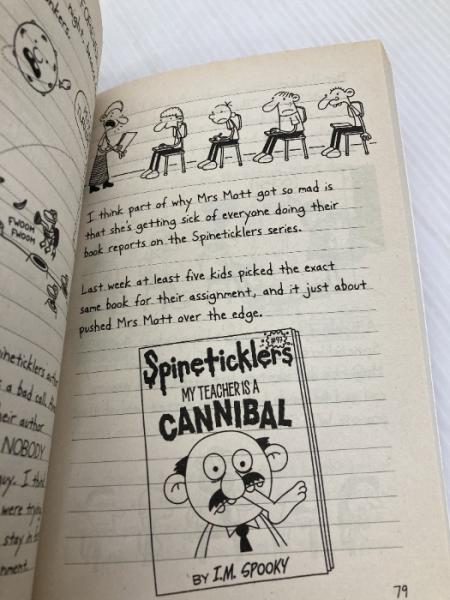 night,
FWOOM
FWOOM
Spineticklers
a bad call,
their author
NOBODY
guy. I think
were trying
stay in
I think part of why Mrs Mott got so mad is
that she's getting sick of everyone doing their
book reports on the Spineticklers series.
Last week at least five kids picked the exact
same book for their assignment, and it just about
pushed Mrs Mott over the edge.
#97
Spineticklers
MY TEACHER IS A
CANNIBAL
BY I.M. SPOOKY
79